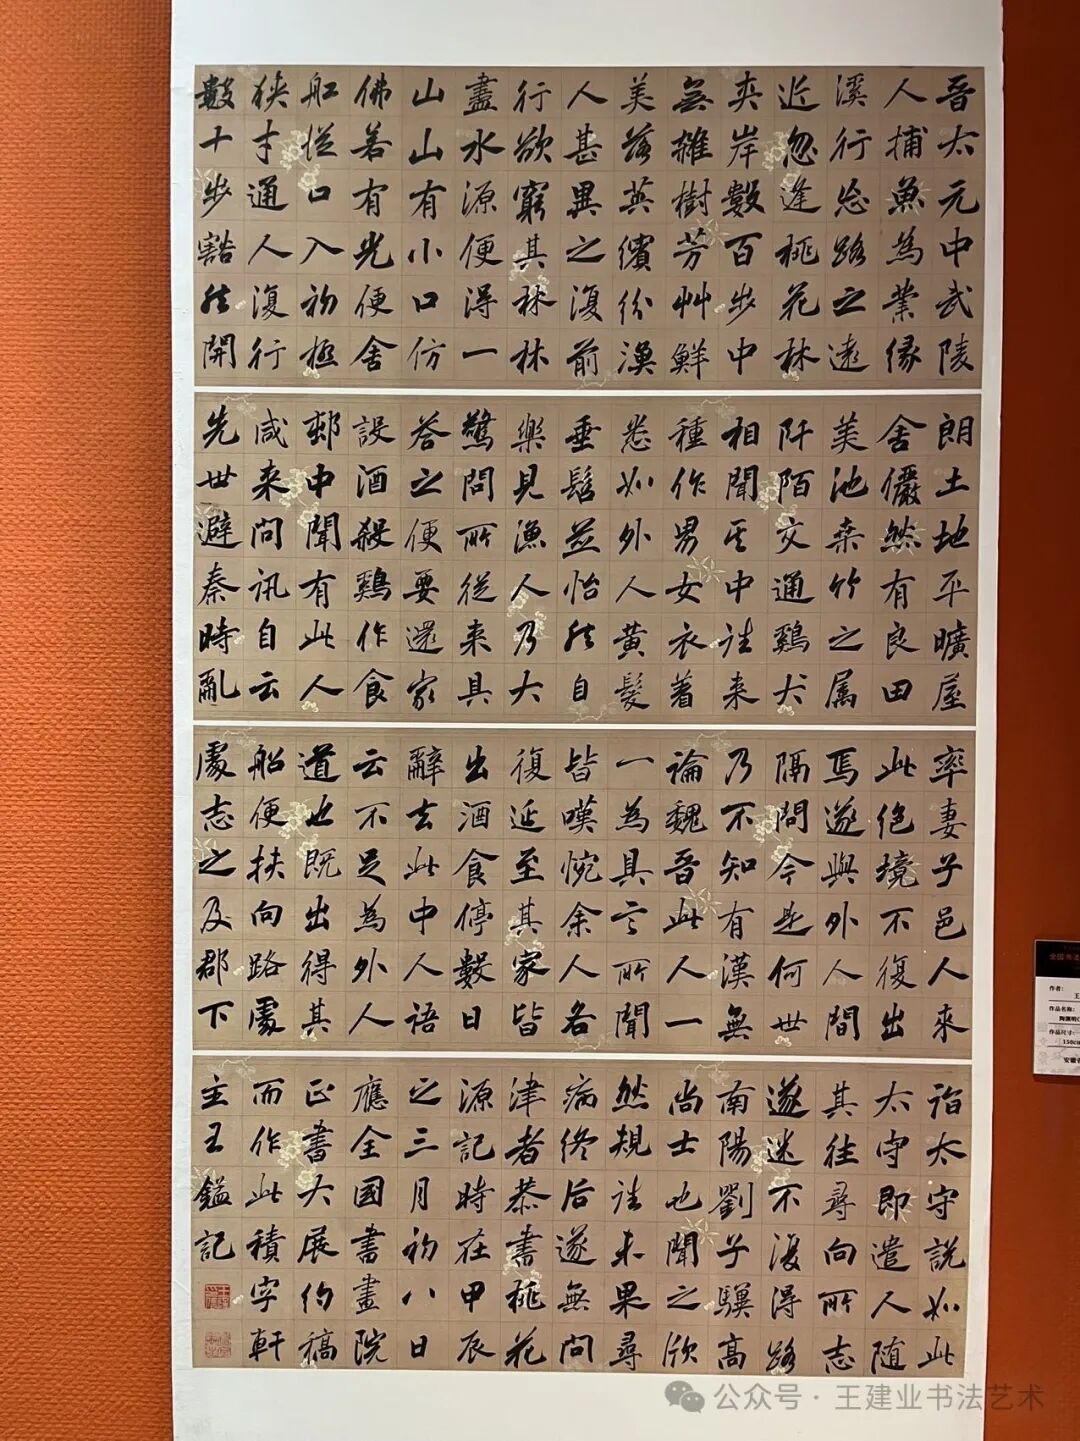 晋太元中武陵
人捕魚為業緣
溪行忘路之遠
近忽逢桃花林
夾岸數百步中
無雜樹芳艸鮮
美落英繽紛漁
人甚異之復前
行欲窮其林林
盡水源便得一
山山有小口仿
佛若有光便舍
船從口入初極
狹才通人復行
數十步豁然開
朗土地平曠屋
舍儼然有良田
美池桑竹之属
阡陌交通鷄犬
相聞其中往来
種作男女衣著
悉如外人黄髮
垂髫並怡然自
樂見漁人乃大
驚問所從来具
答之便要還家
設酒殺鷄作食
邨中聞有此人
咸来問訊自云
先世避秦時亂
率妻子邑人來
此絕境不復出
焉遂與外人間
隔問今是何世
乃不知有漢無
論魏晋此人一
一為具言所聞
皆嘆惋余人各
復延至其家皆
出酒食停數日
辭去此中人語
云不足為外人
道也既出得其
船便扶向路處
處志之及郡下
詣太守說如此
太守即遣人随
其往尋向所志
遂迷不復得路
南陽劉子驥高
尚士也聞之欣
然規往未果尋
病终后遂無問
津者恭書桃花
源記時在甲辰
之三月初八日
應全國書畫院
正書大展約稿
而作此積字軒
主王鎰記
全国书法
作者：
王
作品名称：
陶渊明
作品尺寸：
150cm
安徽
公众号·王建业书法艺术